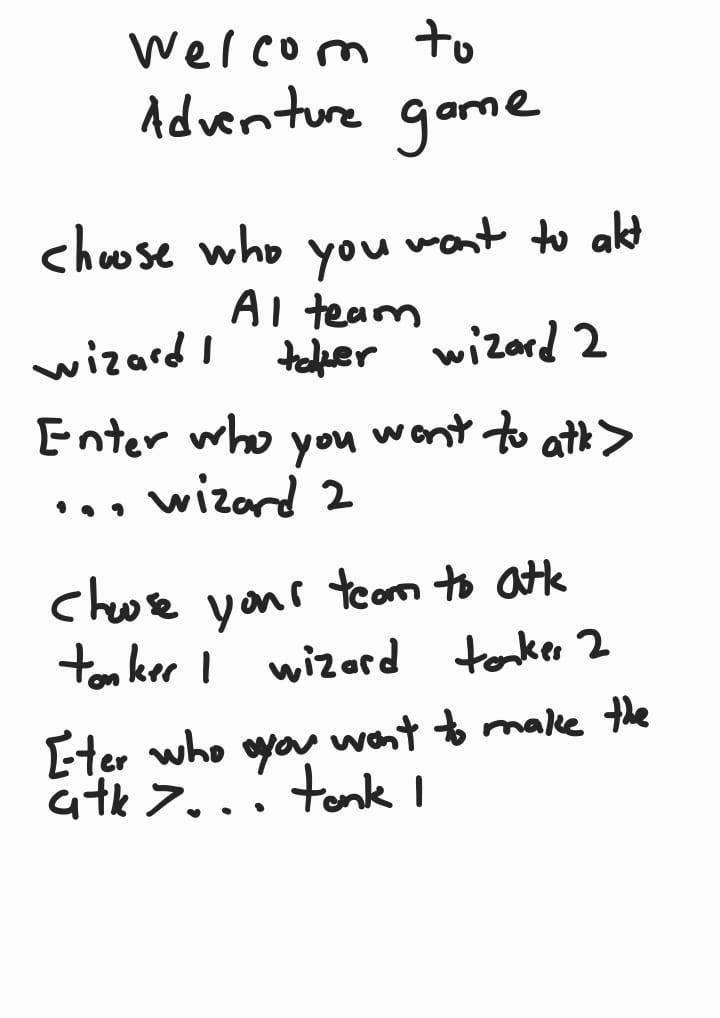 Welcom to
Adventure game
choose who you want to akt
AI team
wizard 1 taker wizard 2
Enter who you want to atk>
... wizard 2
choose your team to atk
tanker 1 wizard tanker 2
Eter who you want to make the
atk >... tank 1